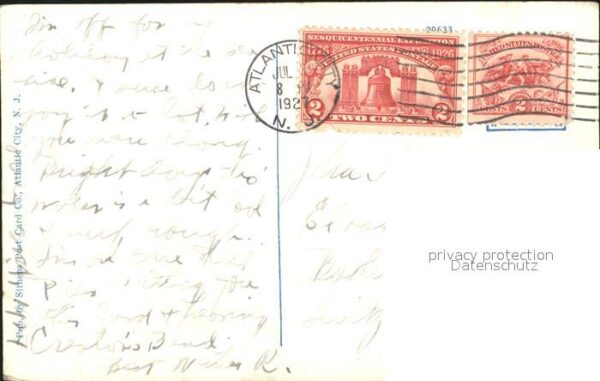 I'm off for a
holiday at the sea
side, & sure do en
joy it a lot, wish
you were along.
Bright day, tho'
water is a bit cold
& surf rough.
I'm on the Steel
Pier writing you
this Card & hearing
Creatore's Band.
Best Wishes R.
Pub. by Sithens Post Card Co., Atlantic City, N. J.
29633
ATLANTIC CITY
JUL
8
1927
N. J.
SESQUICENTENNIAL EXPOSITION
1776 1926
UNITED STATES POSTAGE
2 2
TWO CENTS
UNITED STATES POSTAGE
2
CENTS
John
privacy protection
Datenschutz